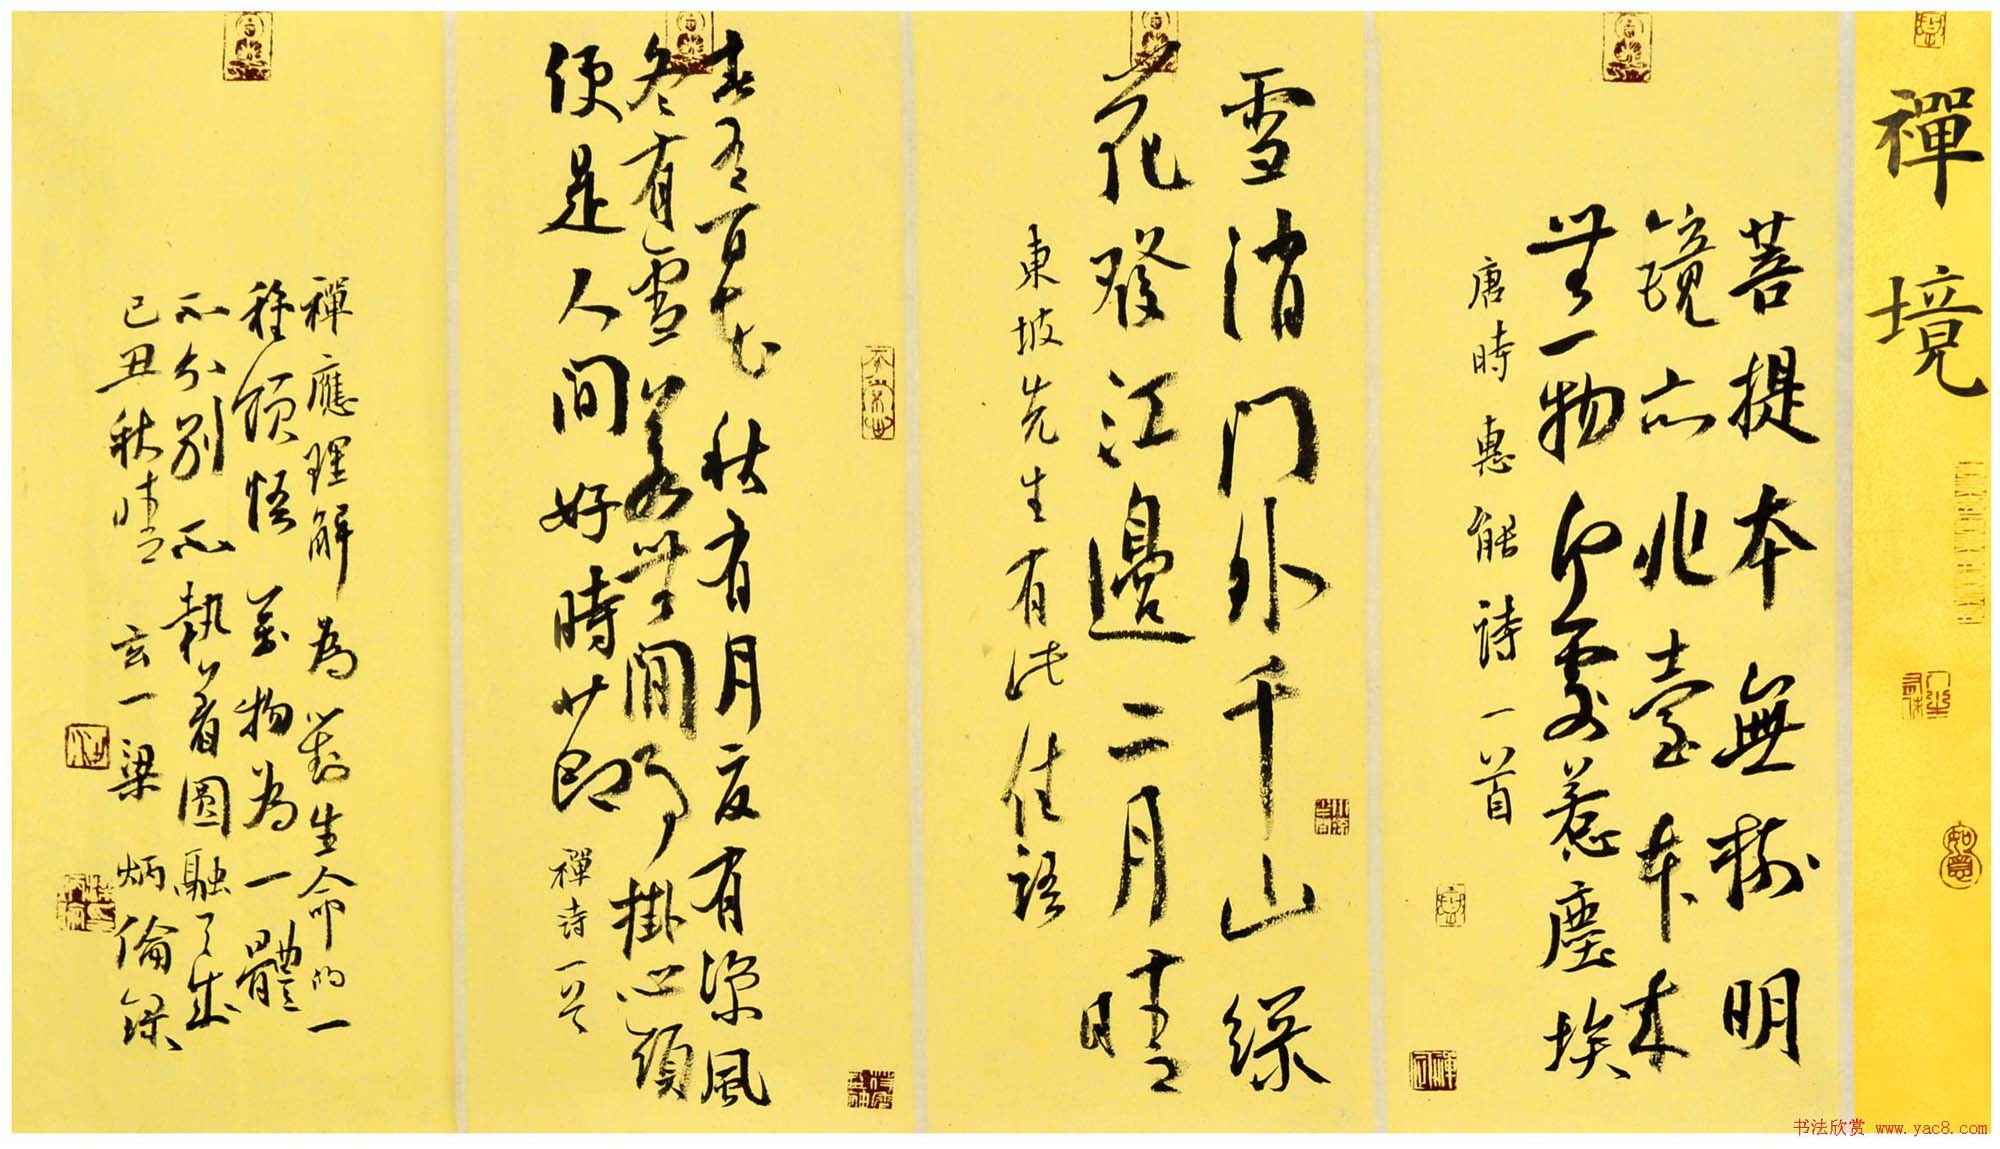 禪境
菩提本無樹明
鏡亦非臺本來
無一物何處惹塵埃
唐時惠能詩一首
雪消門外千山綠
花發江邊二月晴
東坡先生有此佳語
春有百花秋有月夏有涼風
冬有雪若無閒事掛心頭
便是人间好時节
禪诗一首
禪應理解為對生命的一
種領悟萬物為一體
不分別不執着圆融了生
己丑秋晴玄一梁炳倫錄
如意
书法欣赏 www.yac8.com